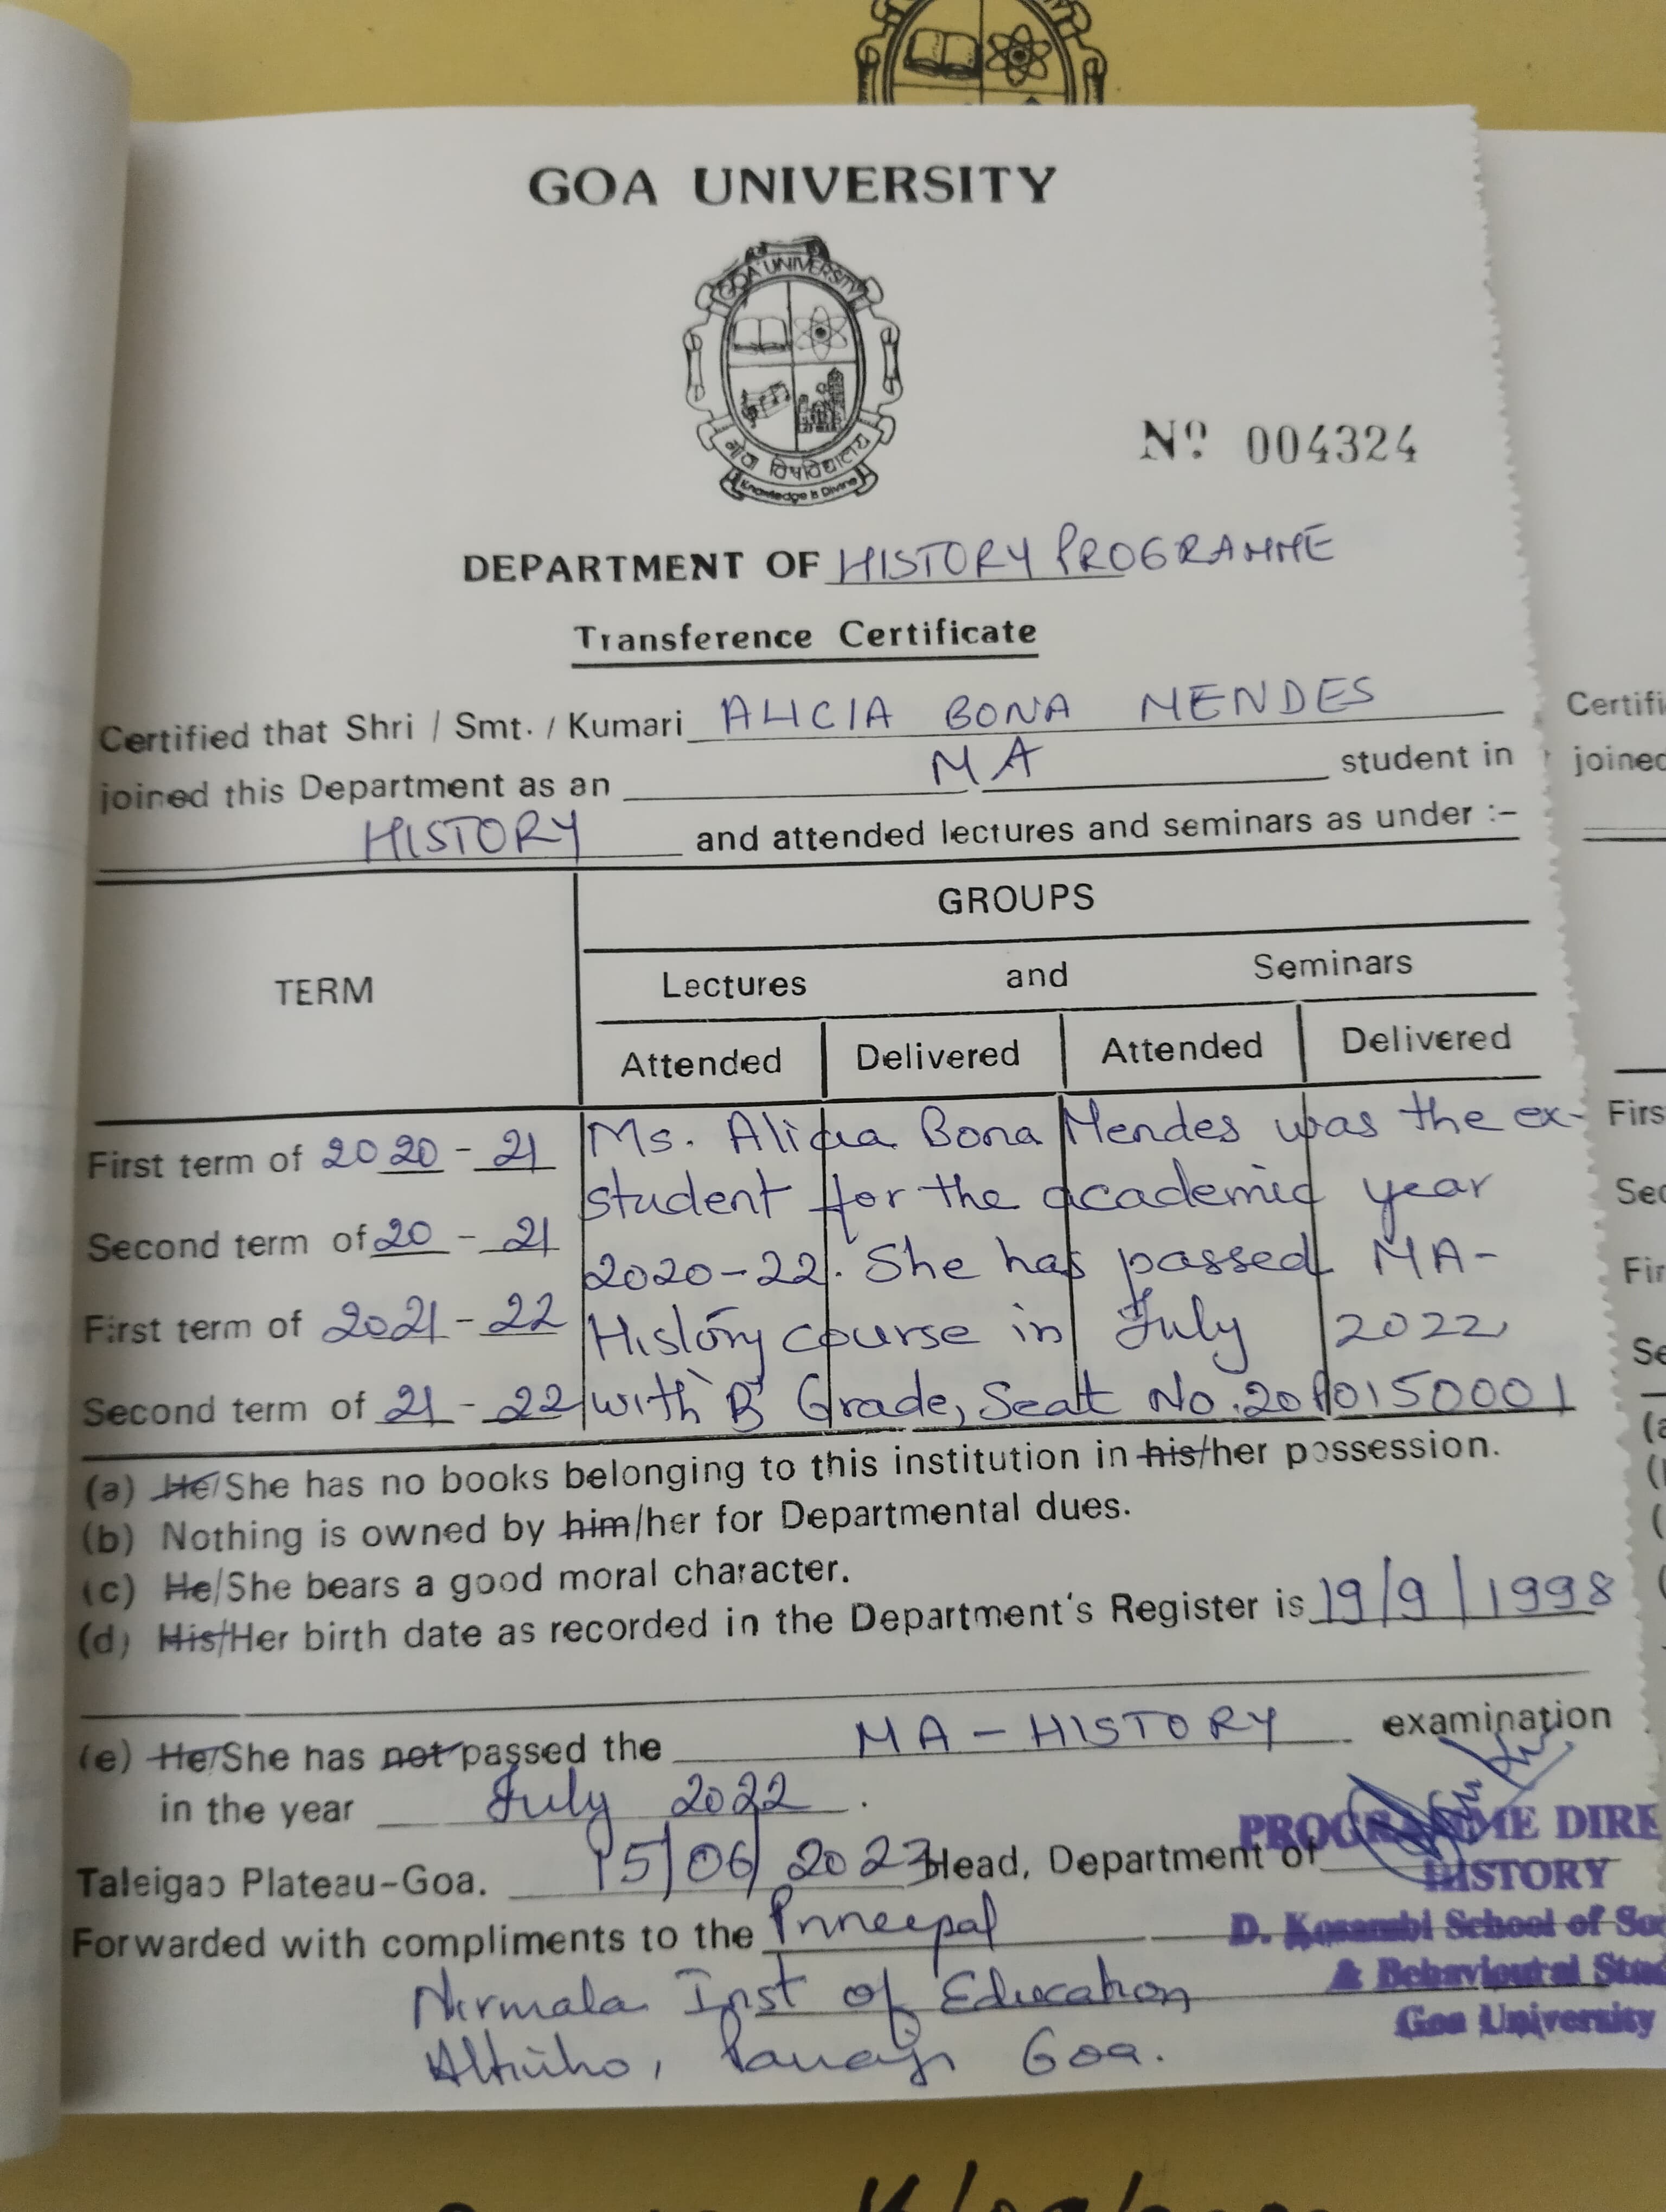 GOA UNIVERSITY
GOA UNIVERSITY
गोंय विद्यापीठ
Knowledge is Divine
Nº 004324
DEPARTMENT OF HISTORY PROGRAMME
Transference Certificate
Certified that Shri / Smt. / Kumari ALICIA BONA MENDES
joined this Department as an MA student in
HISTORY and attended lectures and seminars as under :-
GROUPS
TERM
Lectures and Seminars
Attended Delivered Attended Delivered
First term of 2020 - 21 Ms. Alicia Bona Mendes was the ex-
student for the academic year
Second term of 20 - 21
2020-22. She has passed MA-
First term of 2021 - 22 History course in July 2022
Second term of 21 - 22 with 'B' Grade, Seat No. 20P0150001
(a) He/She has no books belonging to this institution in his/her possession.
(b) Nothing is owned by him/her for Departmental dues.
(c) He/She bears a good moral character.
(d) His/Her birth date as recorded in the Department's Register is 19/9/1998
(e) He/She has not passed the MA - HISTORY examination
in the year July 2022.
Taleigao Plateau-Goa. 15/06/2023 Head, Department of
PROGRAMME DIRE
HISTORY
D. Kosambi School of Soc
& Behavioural Stud
Goa University
Forwarded with compliments to the Principal
Nirmala Inst of Education
Altinho, Panaji Goa.
Certifi
joined
Firs
Sec
Fir
Se